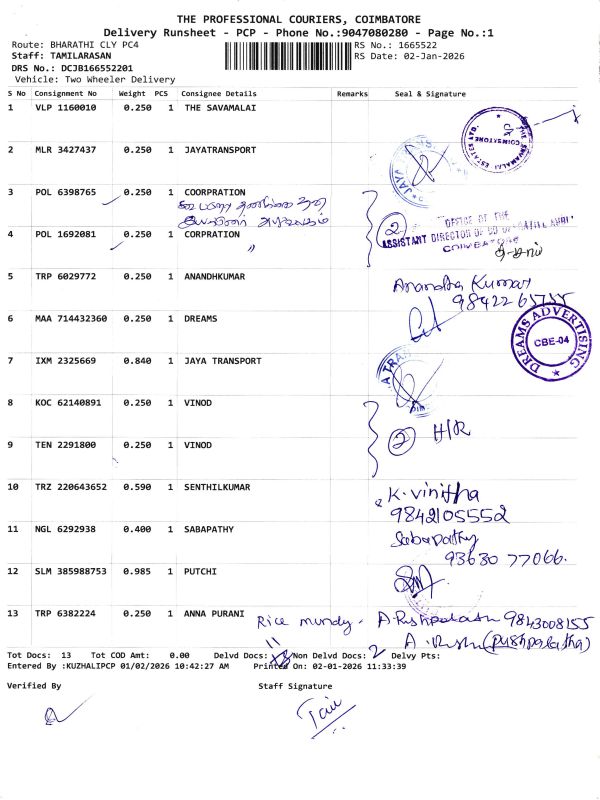 THE PROFESSIONAL COURIERS, COIMBATORE
Delivery Runsheet - PCP - Phone No.:9047080280 - Page No.:1
Route: BHARATHI CLY PC4
RS No.: 1665522
Staff: TAMILARASAN
RS Date: 02-Jan-2026
DRS No.: DCJB166552201
Vehicle: Two Wheeler Delivery
S No Consignment No Weight PCS Consignee Details Remarks Seal & Signature
1 VLP 1160010 0.250 1 THE SAVAMALAI
2 MLR 3427437 0.250 1 JAYATRANSPORT
3 POL 6398765 0.250 1 COORPRATION
② OFFICE OF THE
ASSISTANT DIRECTOR OF
COIMBATORE
4 POL 1692081 0.250 1 CORPRATION
"
5 TRP 6029772 0.250 1 ANANDHKUMAR
Anandha Kumar
98422 65755
6 MAA 714432360 0.250 1 DREAMS
DREAMS ADVERTISING
CBE-04
7 IXM 2325669 0.840 1 JAYA TRANSPORT
8 KOC 62140891 0.250 1 VINOD
② H/R
9 TEN 2291800 0.250 1 VINOD
10 TRZ 220643652 0.590 1 SENTHILKUMAR
K. Vinitha
9842105552
11 NGL 6292938 0.400 1 SABAPATHY
Sabapathy
93630 77066.
12 SLM 385988753 0.985 1 PUTCHI
13 TRP 6382224 0.250 1 ANNA PURANI
Rice mundy - A. Pushpalatha 9843008155
(pushpalatha)
Tot Docs: 13 Tot COD Amt: 0.00 Delvd Docs: 11 Non Delvd Docs: 2 Delvy Pts:
Entered By :KUZHALIPCP 01/02/2026 10:42:27 AM Printed On: 02-01-2026 11:33:39
Verified By
Staff Signature